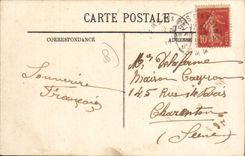 CARTE POSTALE
CORRESPONDANCE
ADRESSE
Souvenir
François
Maison Cayron
145 Rue de Paris
Charenton
(Seine)
10